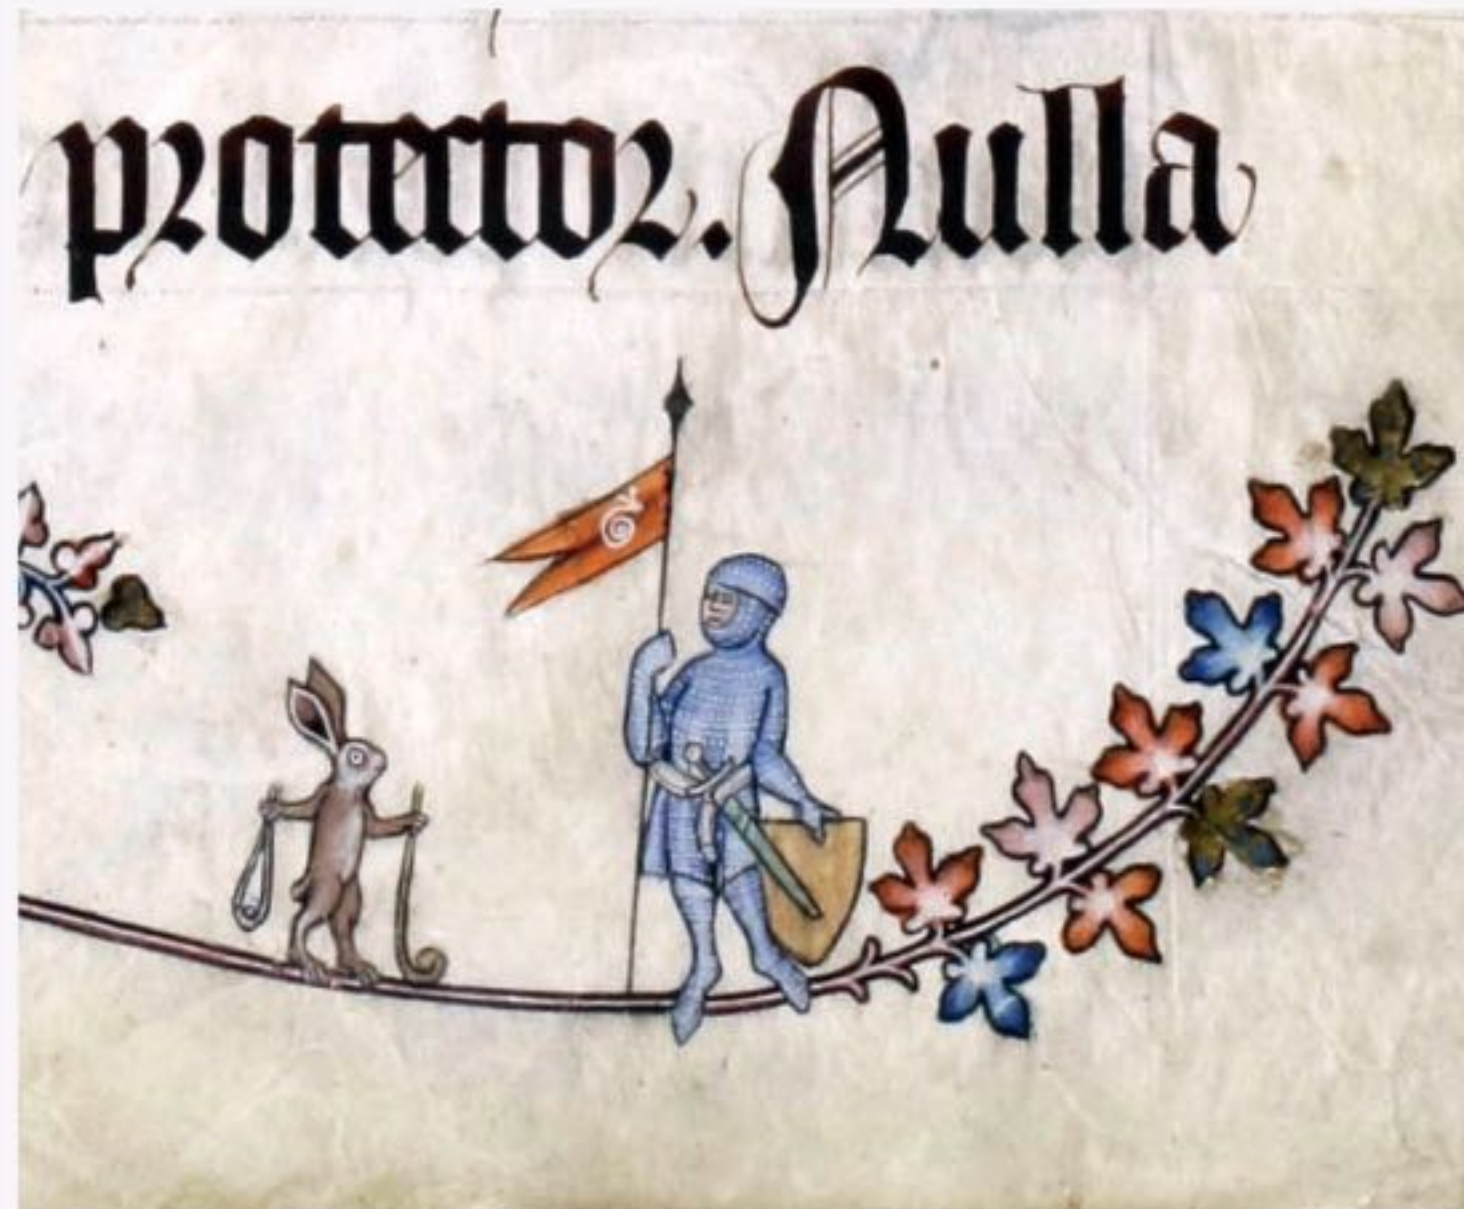 protector. Nulla